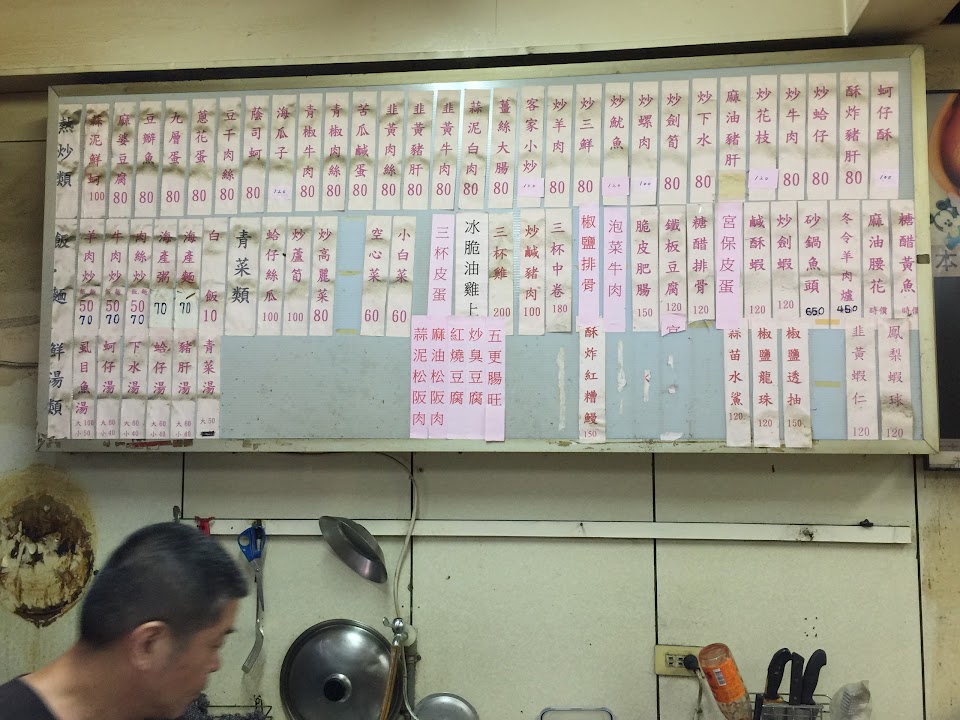 熱炒類
蒜泥鮮蚵 100
麻婆豆腐 80
豆瓣魚 80
九層蛋 80
蔥花蛋 80
豆干肉絲 80
蔭司蚵 80
海瓜子 120
青椒牛肉 80
青椒肉絲 80
苦瓜鹹蛋 80
韭黃肉絲 80
韭黃豬肝 80
韭黃牛肉 80
蒜泥白肉 80
薑絲大腸 80
客家小炒 100
炒羊肉 80
炒三鮮 80
炒魷魚 120
炒螺肉 100
炒劍筍 80
炒下水 80
麻油豬肝
炒花枝 120
炒牛肉 80
炒蛤仔 80
酥炸豬肝 80
蚵仔酥 100
飯．麵
羊肉炒 飯麵 50 70
牛肉炒 飯麵 50 70
肉絲炒 飯麵 50 70
海產粥 70
海產麵 70
白飯 10
青菜類
蛤仔絲瓜 100
炒蘆筍 100
炒高麗菜 80
空心菜 60
小白菜 60
三杯皮蛋
冰脆油雞上
三杯雞 200
炒鹹豬肉 100
三杯中卷 180
椒鹽排骨
泡菜牛肉
脆皮肥腸 150
鐵板豆腐 120
糖醋排骨 120
宮保皮蛋
鹹酥蝦 120
炒劍蝦 120
砂鍋魚頭 650
冬令羊肉爐 450
麻油腰花 時價
糖醋黃魚 時價
鮮湯類
虱目魚湯 大100 小50
蚵仔湯 大60 小40
下水湯 大60 小40
蛤仔湯 大60 小40
豬肝湯 大60 小40
青菜湯 大50
蒜泥松阪肉
麻油松阪肉
紅燒豆腐
炒臭豆腐
五更腸旺
酥炸紅糟鰻 150
宮
蒜苗水鯊 120
椒鹽龍珠 120
椒鹽透抽 150
韭黃蝦仁 120
鳳梨蝦球 120
本